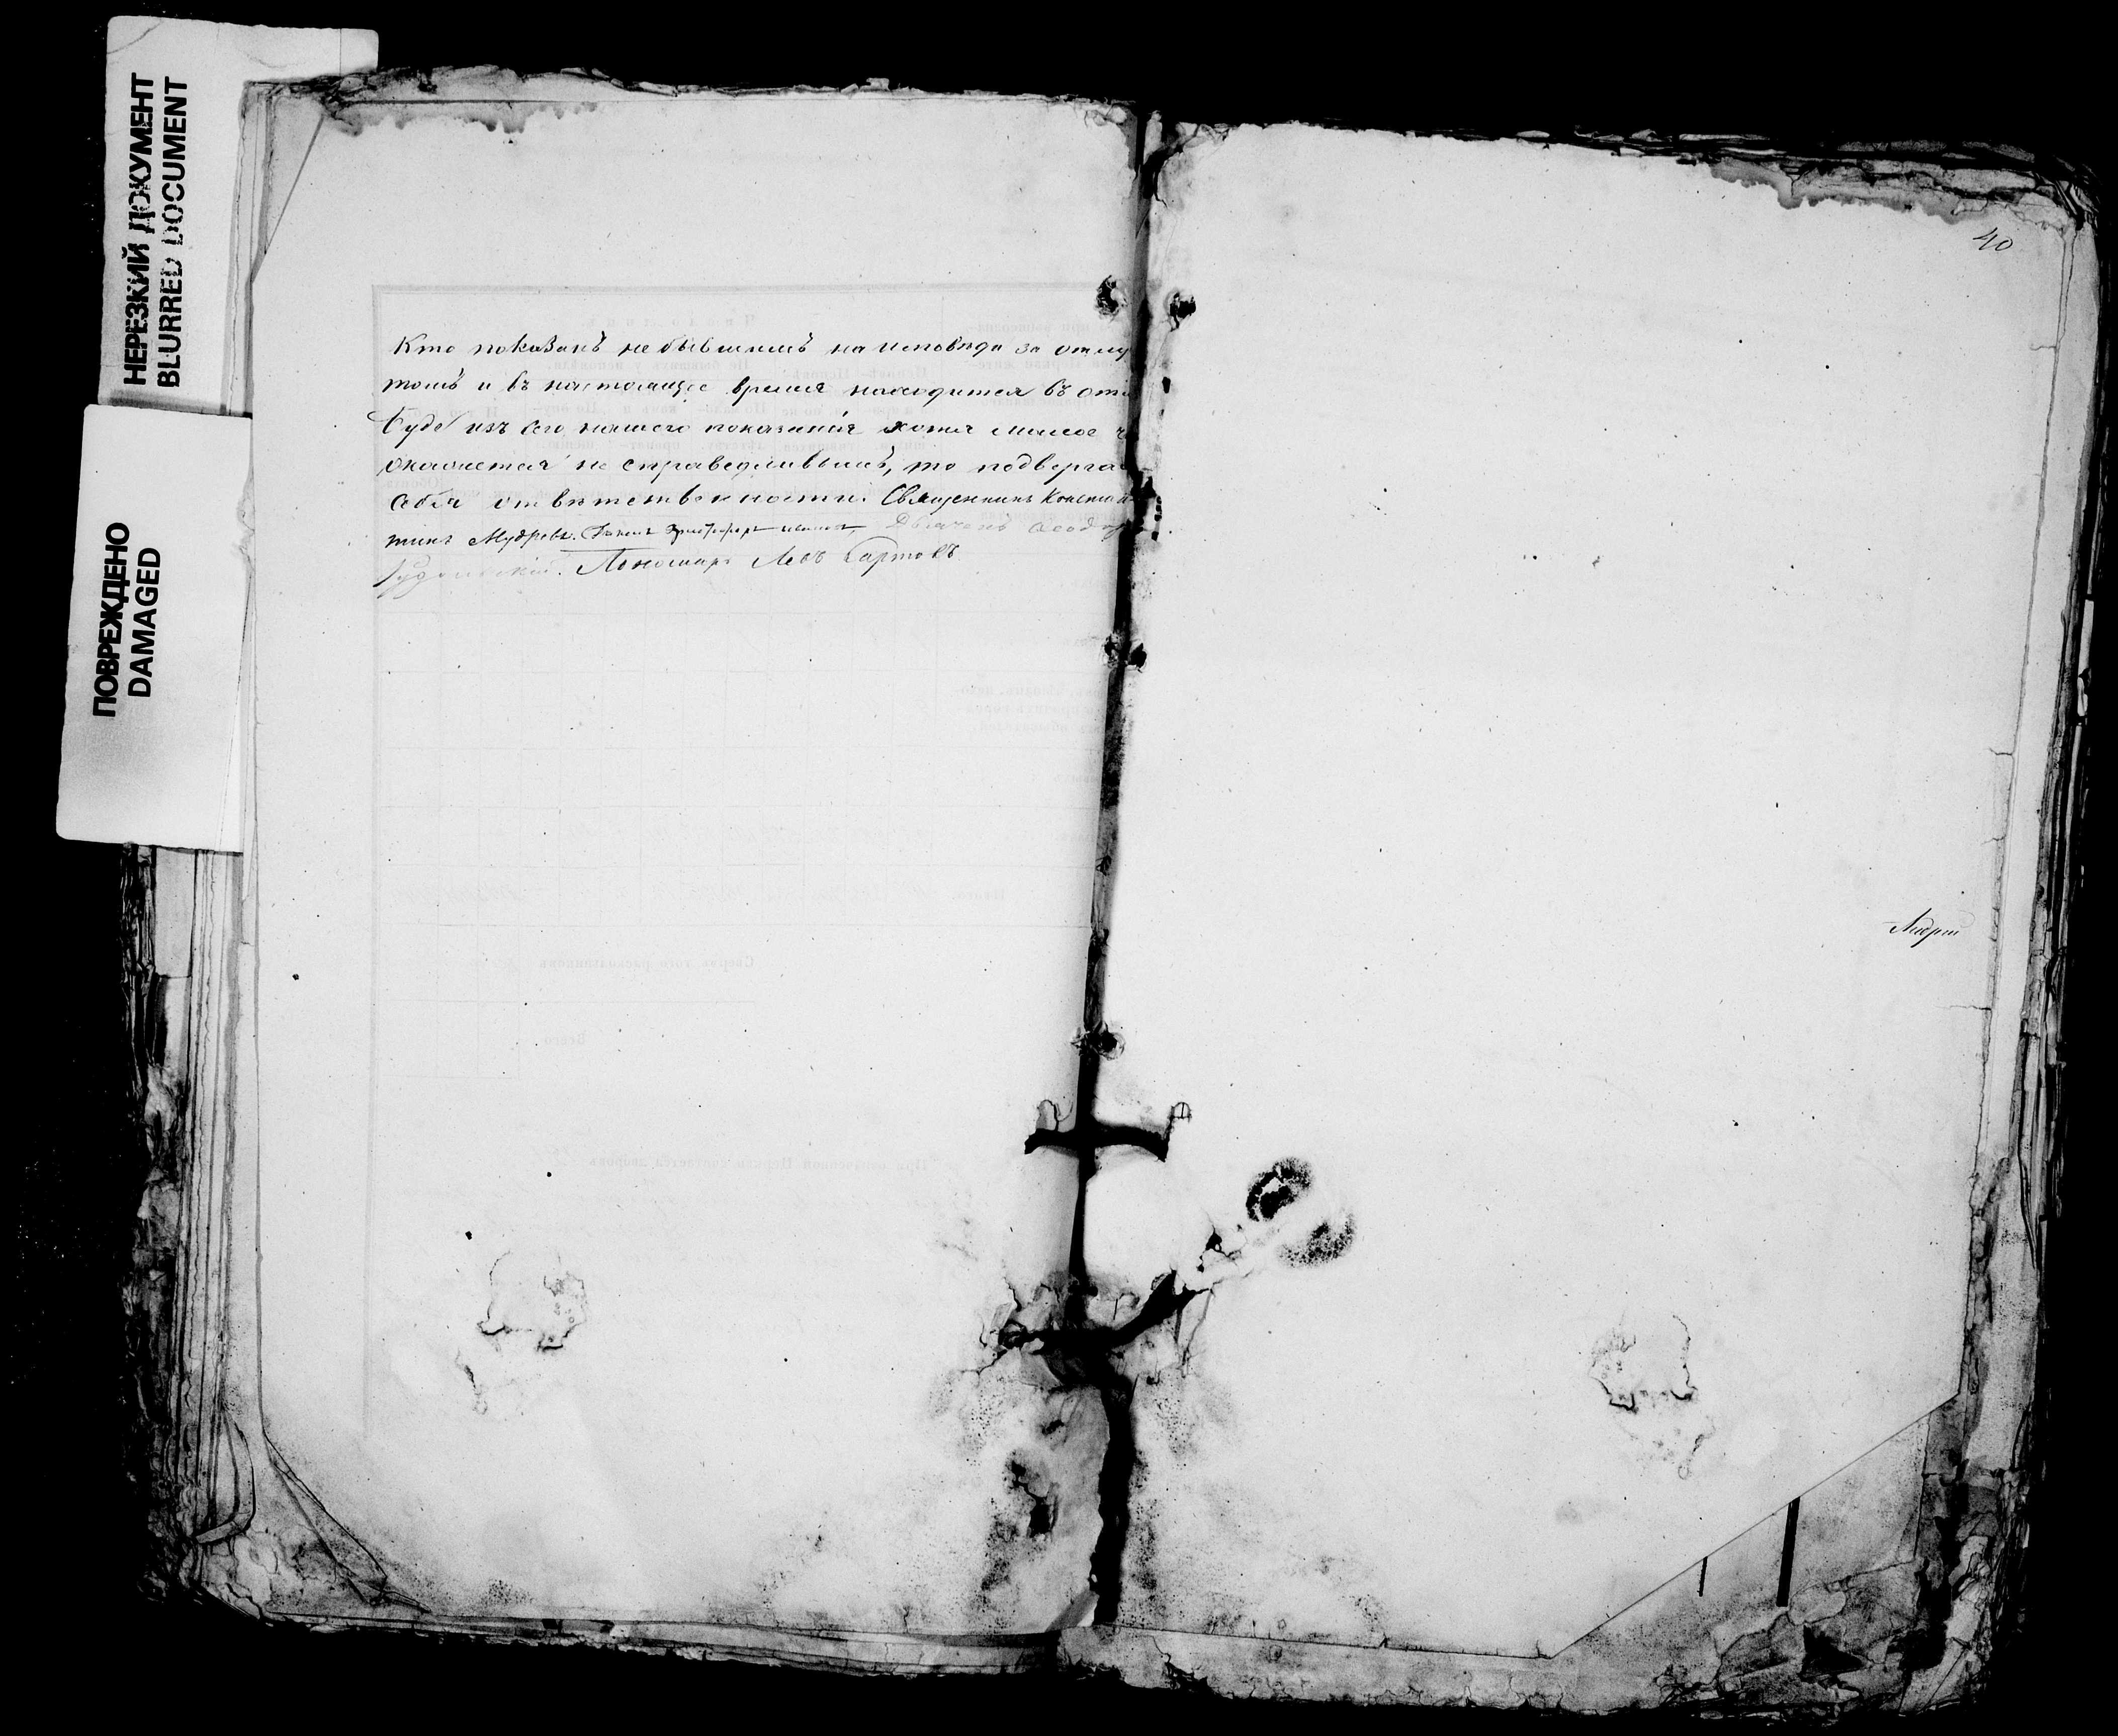 НЕРЕЗКИЙ ДОКУМЕНТ
BLURRED DOCUMENT
ПОВРЕЖДЕНО
DAMAGED
Кто показанъ не бывшимъ на исповѣди за отлу
томъ и въ настоящее время находится въ отл
Буде изъ сего нашего показанія хотя малое ч
окажется не справедливымъ, то подверга
себя отвѣтственности. Священникъ Констан
тинъ Мудровъ. Діаконъ Ивановъ, Дьячекъ Ѳеодоръ
Пономарь Левъ Карповъ.
40